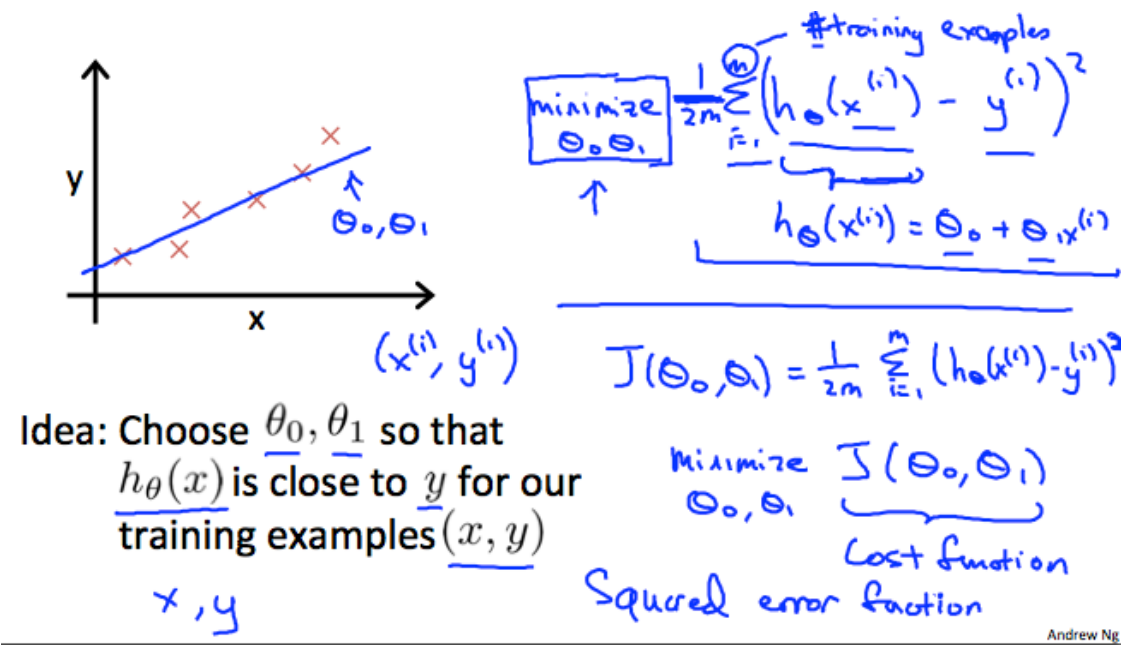 y
x
θ₀, θ₁
(x⁽ⁱ⁾, y⁽ⁱ⁾)
Idea: Choose θ₀, θ₁ so that
hθ(x) is close to y for our
training examples (x, y)
x, y
# training examples
minimize
θ₀ θ₁
1/2m Σᵢ₌₁ᵐ (hθ(x⁽ⁱ⁾) - y⁽ⁱ⁾)²
hθ(x⁽ⁱ⁾) = θ₀ + θ₁x⁽ⁱ⁾
J(θ₀, θ₁) = 1/2m Σᵢ₌₁ᵐ (hθ(x⁽ⁱ⁾) - y⁽ⁱ⁾)²
minimize J(θ₀, θ₁)
θ₀, θ₁
Cost function
Squared error faction
Andrew Ng